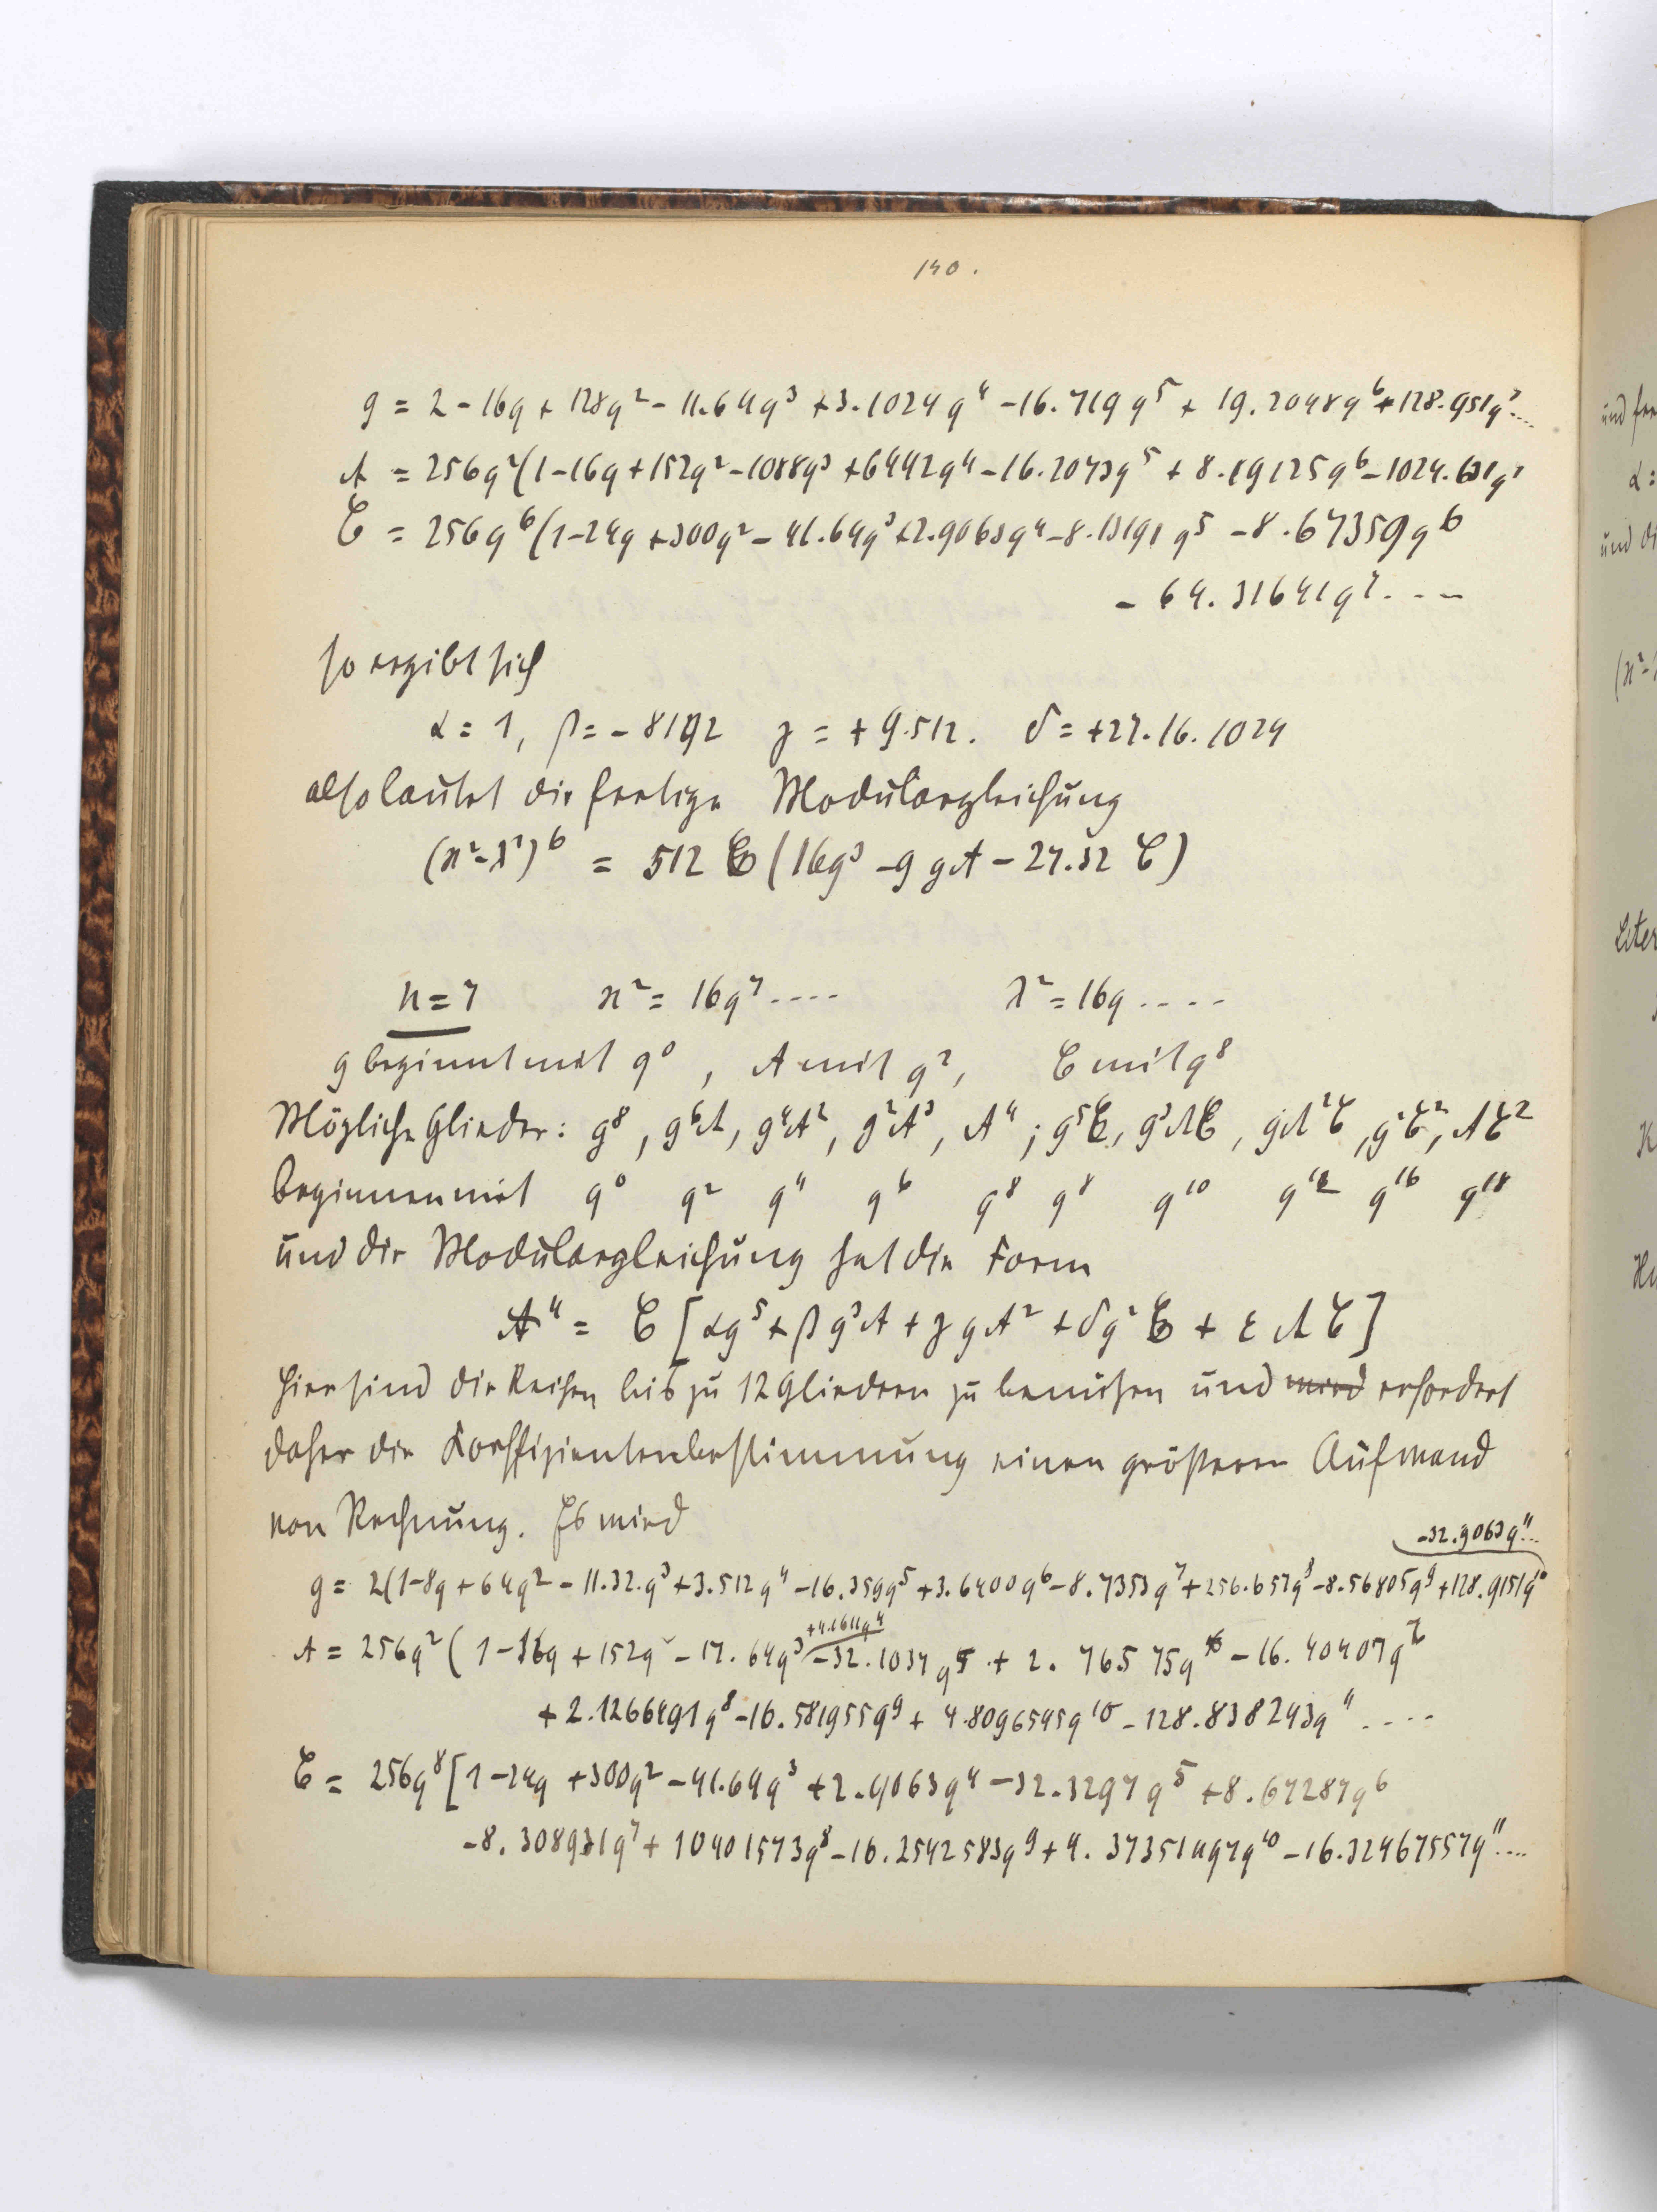 130.
g = 2 - 16q + 128q² - 11.64q³ + 3.1024q⁴ - 16.719q⁵ + 19.2048q⁶ + 128.951q⁷...
A = 256q²(1-16q+152q²-1088q³+6442q⁴-16.2073q⁵+8.19125q⁶-1024.631q⁷
C = 256q⁶(1-24q+300q²-41.64q³+2.9063q⁴-8.13191q⁵-8.67359q⁶
- 64.31641q⁷....
so ergibt sich
α = 1, β = - 8192 γ = + 9.512. δ = +27.16.1024
also lautet die fertige Modulargleichung
(ϰ²-λ²)⁶ = 512 C (16g³ - 9gA - 27.32 C)
n = 7 ϰ² = 16q⁷.... λ² = 16q....
g beginnt mit q⁰, A mit q², C mit q⁸
Mögliche Glieder: g⁸, g⁶A, g⁴A², g²A³, A⁴; g⁵C, g³AC, gA²C, g²C², AC²
beginnen mit q⁰ q² q⁴ q⁶ q⁸ q⁸ q¹⁰ q¹² q¹⁶ q¹⁸
und die Modulargleichung hat die Form
A⁴ = C [αg⁵ + βg³A + γgA² + δg²C + εAC]
Hier sind die Reihen bis zu 12 Gliedern zu benützen und wird erfordert
daher die Koeffizientenbestimmung einen größeren Aufwand
von Rechnung. Es wird
-32.9063q¹¹...
g = 2(1-8q+64q²-11.32.q³+3.512q⁴-16.359q⁵+3.6400q⁶-8.7353q⁷+256.657q⁸-8.56805q⁹+128.9151q¹⁰
+4.1611q⁴
A = 256q²(1-16q+152q²-17.64q³-32.1034q⁵+2.76575q⁶-16.40407q⁷
+2.1266491q⁸-16.581955q⁹+4.8096545q¹⁰-128.838243q¹¹....
C = 256q⁸[1-24q+300q²-41.64q³+2.9063q⁴-32.3297q⁵+8.67287q⁶
-8.308931q⁷+10401573q⁸-16.2542583q⁹+4.37351497q¹⁰-16.32467557q¹¹....